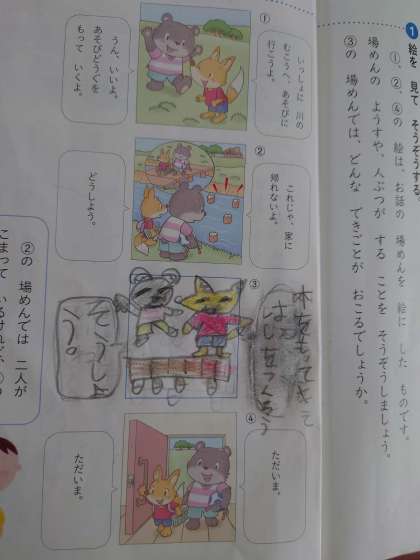 1 絵を 見て そうぞうする
①、②、④の 絵は、お話の 場めんを 絵に した ものです。
場めんの ようすや、人ぶつが する ことを そうぞうしましょう。
③の 場めんでは、どんな できごとが おこるでしょうか。
①
いっしょに 川の
むこうへ、あそびに
行こうよ。
うん、いいよ。
あそびどうぐを
もって いくよ。
②
これじゃ、家に
帰れないよ。
どうしよう。
③
木をもってきて
はしをつくろう
そうしよ
う。
④
ただいま。
ただいま。
②の 場めんでは 二人が
こまって いるけれど、